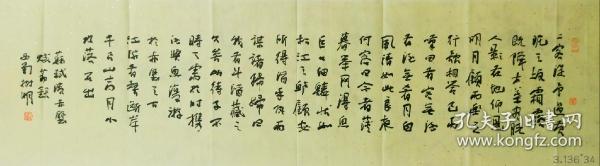 二客從予過黃
泥之坂霜露
既降木葉盡脫
人影在地仰見
明月顧而樂之
行歌相答已而
嘆曰有客無酒
有酒無肴月白
風清如此良夜
何客曰今者薄
暮舉網得魚
巨口細鱗狀如
松江之鱸顧安
所得酒乎歸而
謀諸婦婦曰
我有斗酒藏之
久矣以待子不
時之需於是攜
酒與魚復遊
於赤壁之下
江流有聲斷岸
千尺山高月小
水落石出
蘇軾後赤壁
賦
西蜀
孔夫子旧书网
book.kongfz.com
3.136"34